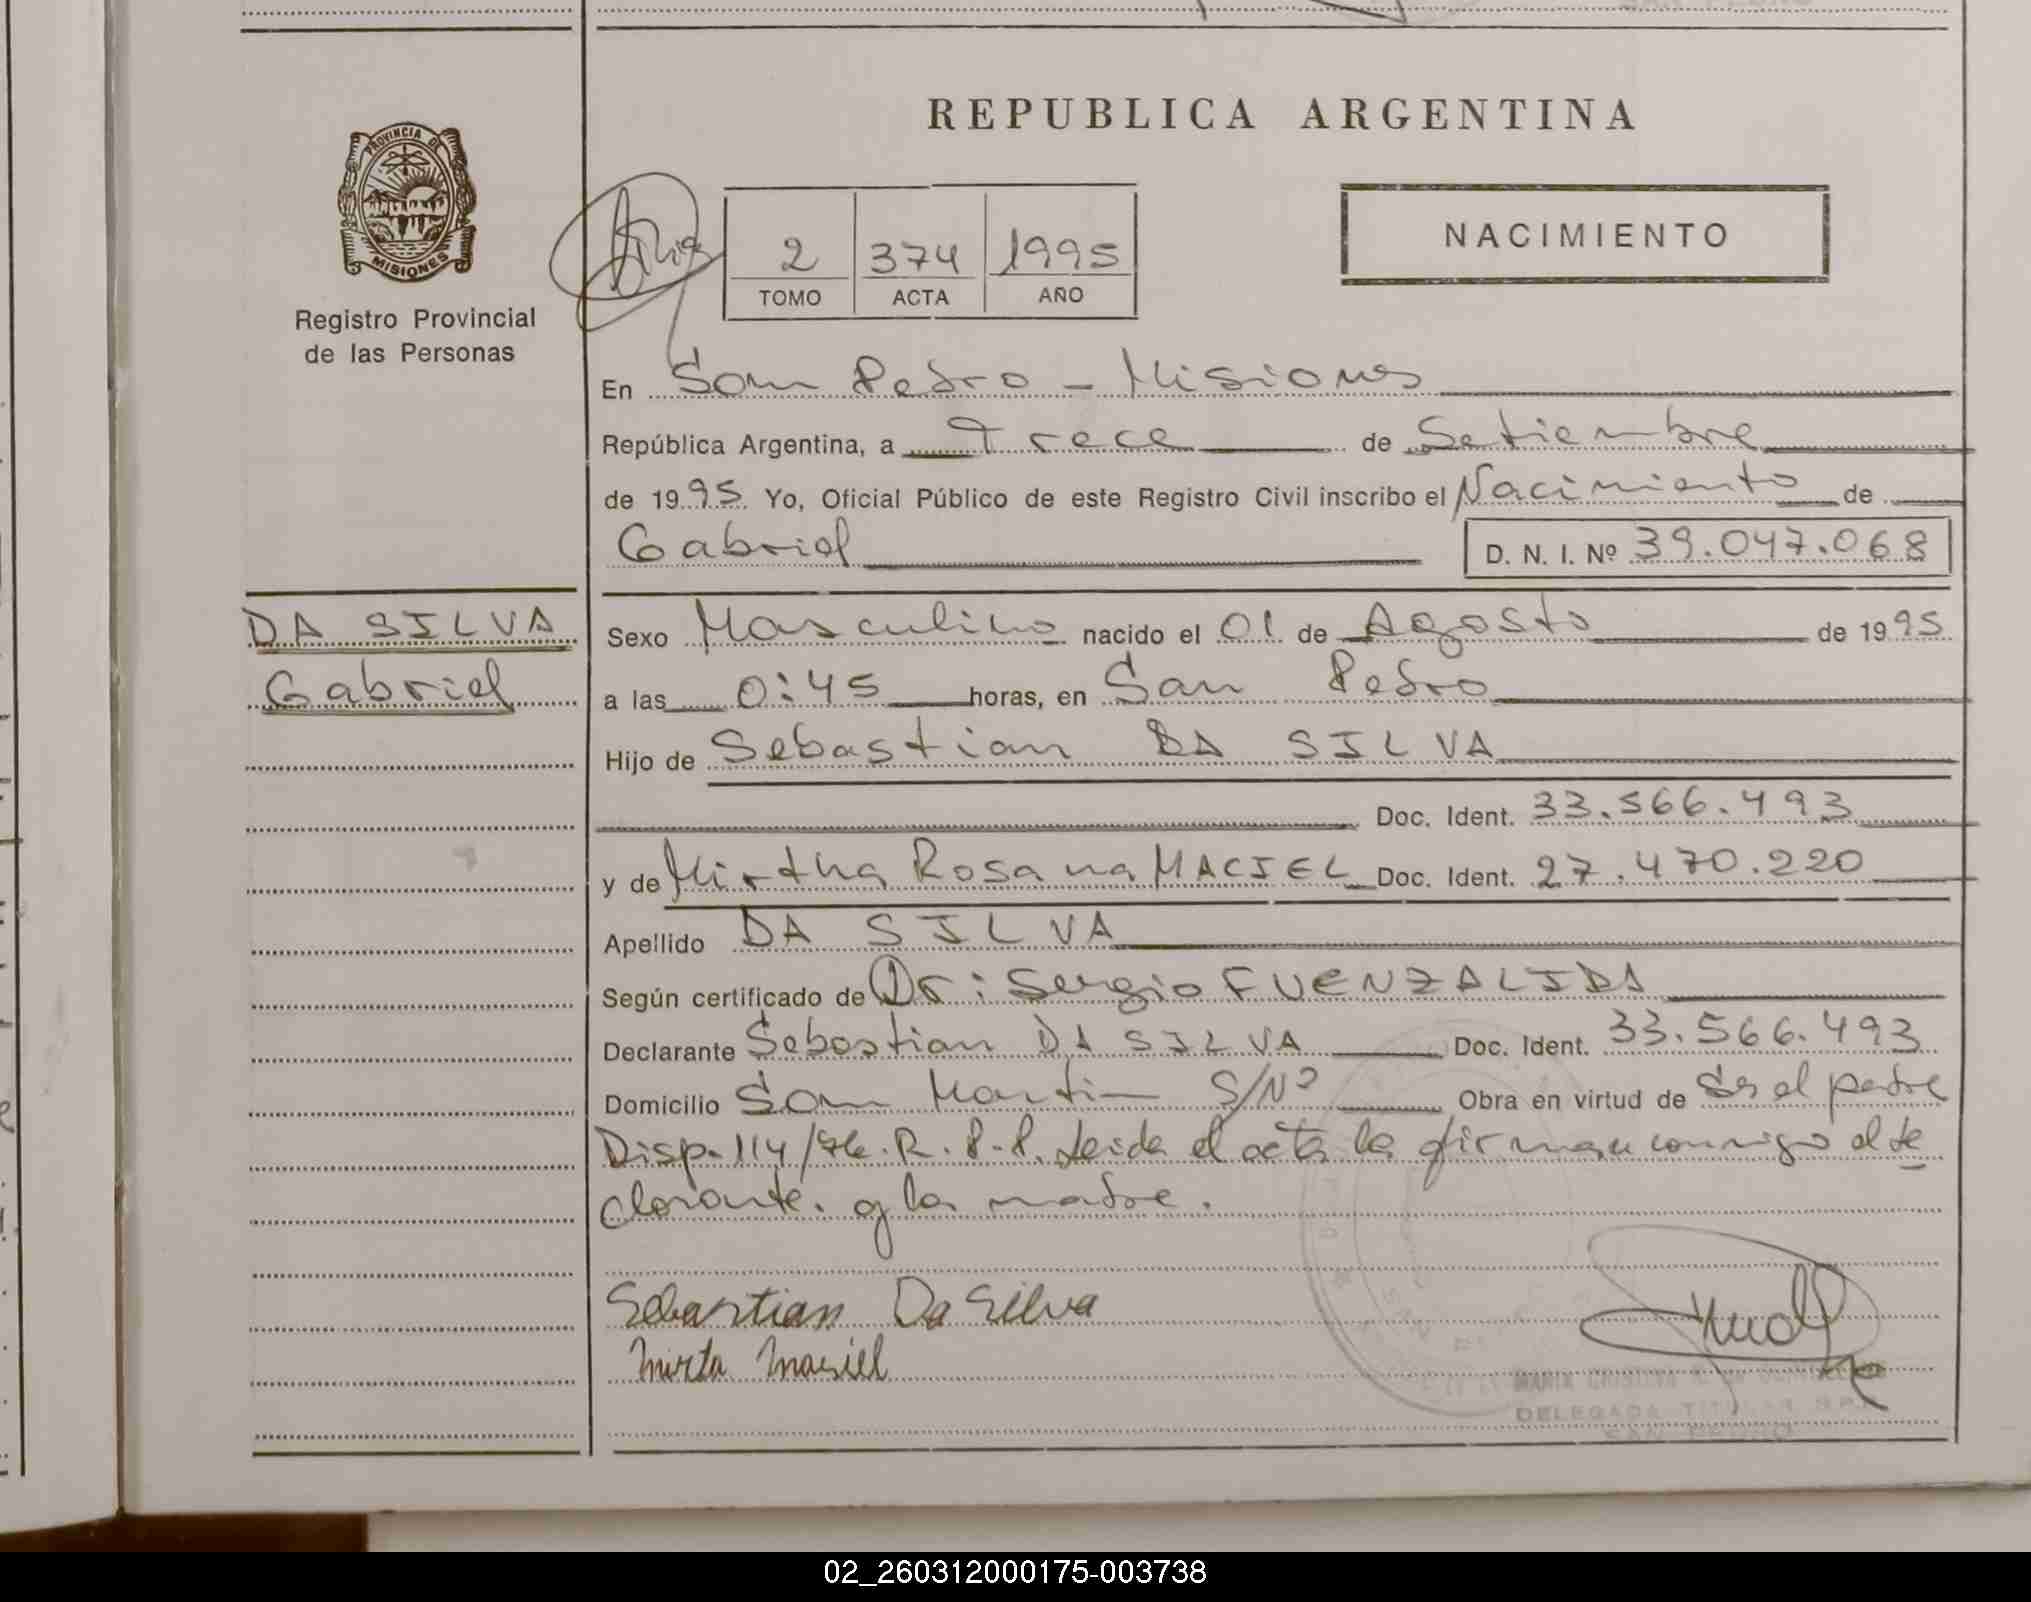 REPUBLICA ARGENTINA
PROVINCIA DE
MISIONES
Registro Provincial
de las Personas
2 374 1995
TOMO ACTA AÑO
NACIMIENTO
En San Pedro - Misiones
República Argentina, a Trece de Setiembre
de 1995 Yo, Oficial Público de este Registro Civil inscribo el Nacimiento de
Gabriel D. N. I. Nº 39.047.068
DA SILVA
Gabriel
Sexo Masculino nacido el 01 de Agosto de 1995
a las 0:45 horas, en San Pedro
Hijo de Sebastian DA SILVA
Doc. Ident. 33.566.493
y de Mirtha Rosana MACIEL Doc. Ident. 27.470.220
Apellido DA SILVA
Según certificado de Dr: Sergio FUENZALIDA
Declarante Sebastian DA SILVA Doc. Ident. 33.566.493
Domicilio San Martin S/Nº Obra en virtud de Ser el padre
Disp. 114/ R.P.P. Leida el acta la firman conmigo el de
clarante. y la madre.
Sebastian Da Silva
Mirta Masiel
MARIA CRISTINA
DELEGADA TITULAR
SAN PEDRO
02_260312000175-003738